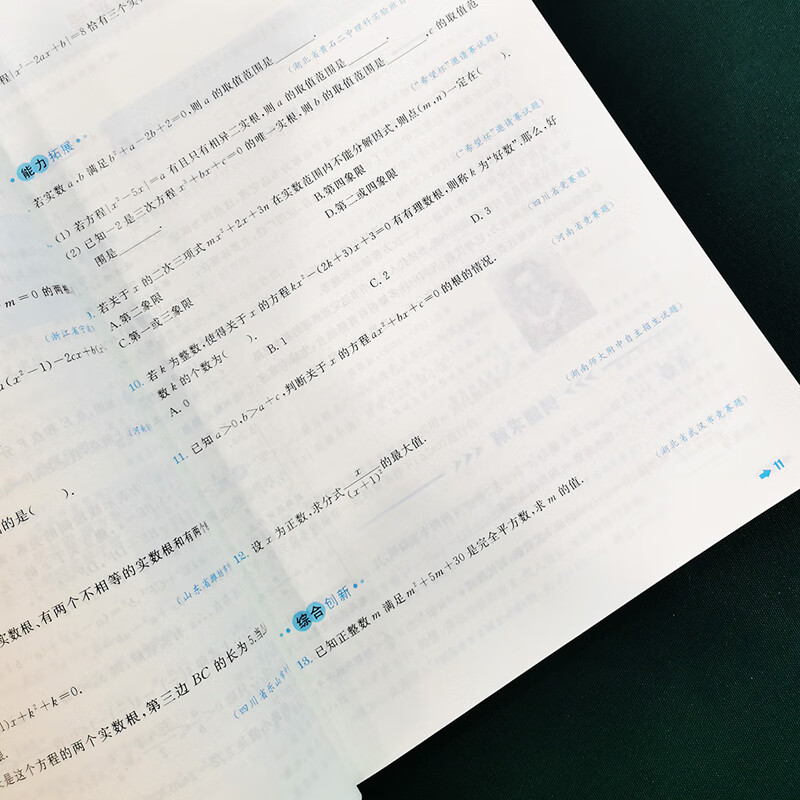 程|x²-2ax+b|=8恰有三个实
m=0的两根
(浙江省宁
(x²-1)-2cx+b(x
(河南
的是(  ).
实数根、有两个不相等的实数根和有两个
(山东省潍坊
1)x+k²+k=0.
长是这个方程的两个实数根,第三边BC的长为5,当
(四川省乐山
能力拓展
若实数a,b满足b²+a-2b+2=0,则a的取值范围是______.
(湖北省黄石二中理科实验班
(1) 若方程|x²-5x|=a有且只有相异二实根,则a的取值范围是______.
(2) 已知-2是三次方程x³+bx+c=0的唯一实根,则b的取值范围是______,c的取值范
围是______.
("希望杯"邀请赛试题)
若关于x的二次三项式mx²+2x+3n在实数范围内不能分解因式,则点(m,n)一定在(  ).
A.第二象限
B.第四象限
C.第一或三象限
D.第二或四象限
("希望杯"邀请赛试题)
10. 若k为整数,使得关于x的方程kx²-(2k+3)x+3=0有有理数根,则称k为"好数".那么,好
数k的个数为(  ).
(四川省竞赛题)
A. 0
B. 1
C. 2
D. 3
(河南省竞赛题)
11. 已知a>0,b>a+c,判断关于x的方程ax²+bx+c=0的根的情况.
(湖南师大附中自主招生试题)
12. 设x为正数,求分式x/(x+1)²的最大值.
(湖北省武汉市竞赛题)
综合创新
13. 已知正整数m满足m²+5m+30是完全平方数,求m的值.
11